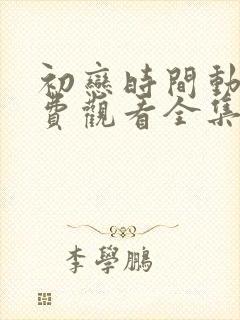 初戀時間動
費觀看全集
李學鵬